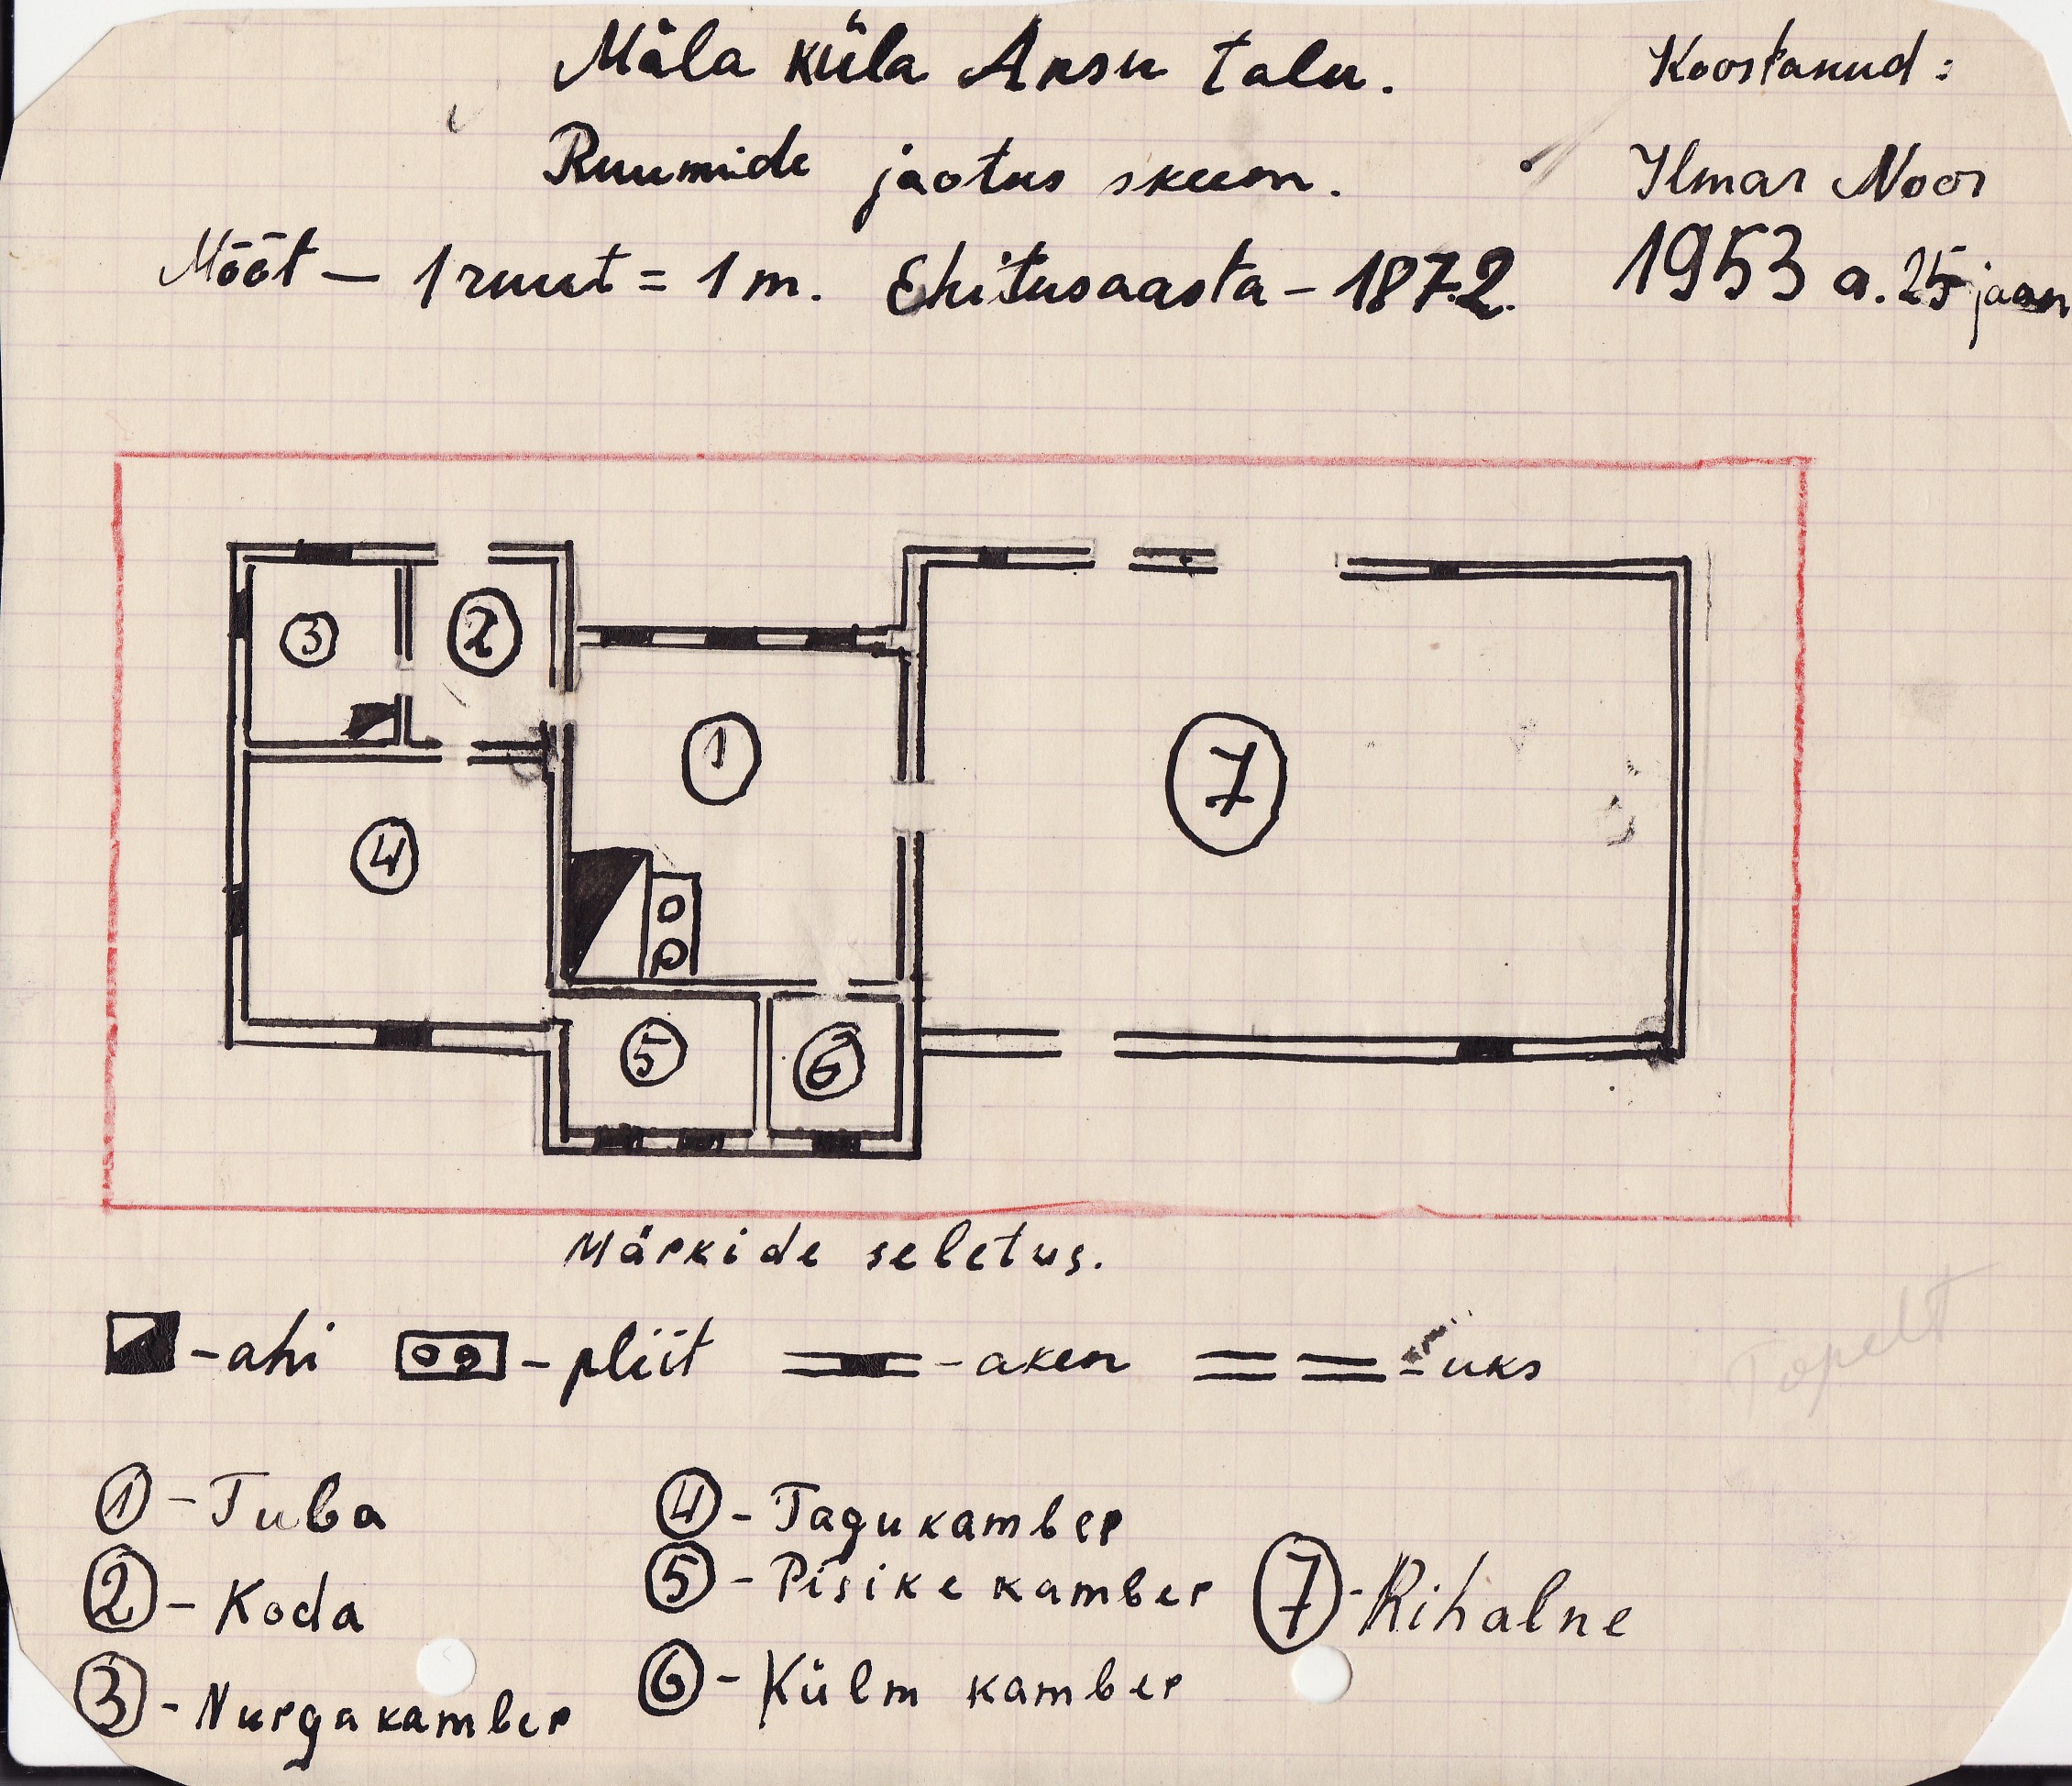 Mäla küla Ansu talu.
Ruumide jaotus skeem.
Mõõt – 1 ruut = 1 m. Ehitusaasta – 1872.
Koostanud:
Ilmar Noor
1953 a. 25 jaan
3
2
1
7
4
5
6
Märkide seletus.
- ahi
- pliit
- aken
- uks
Topelt
1 - Tuba
2 - Koda
3 - Nurgakamber
4 - Tagukamber
5 - Pisike kamber
6 - Külm kamber
7 - Rihalne